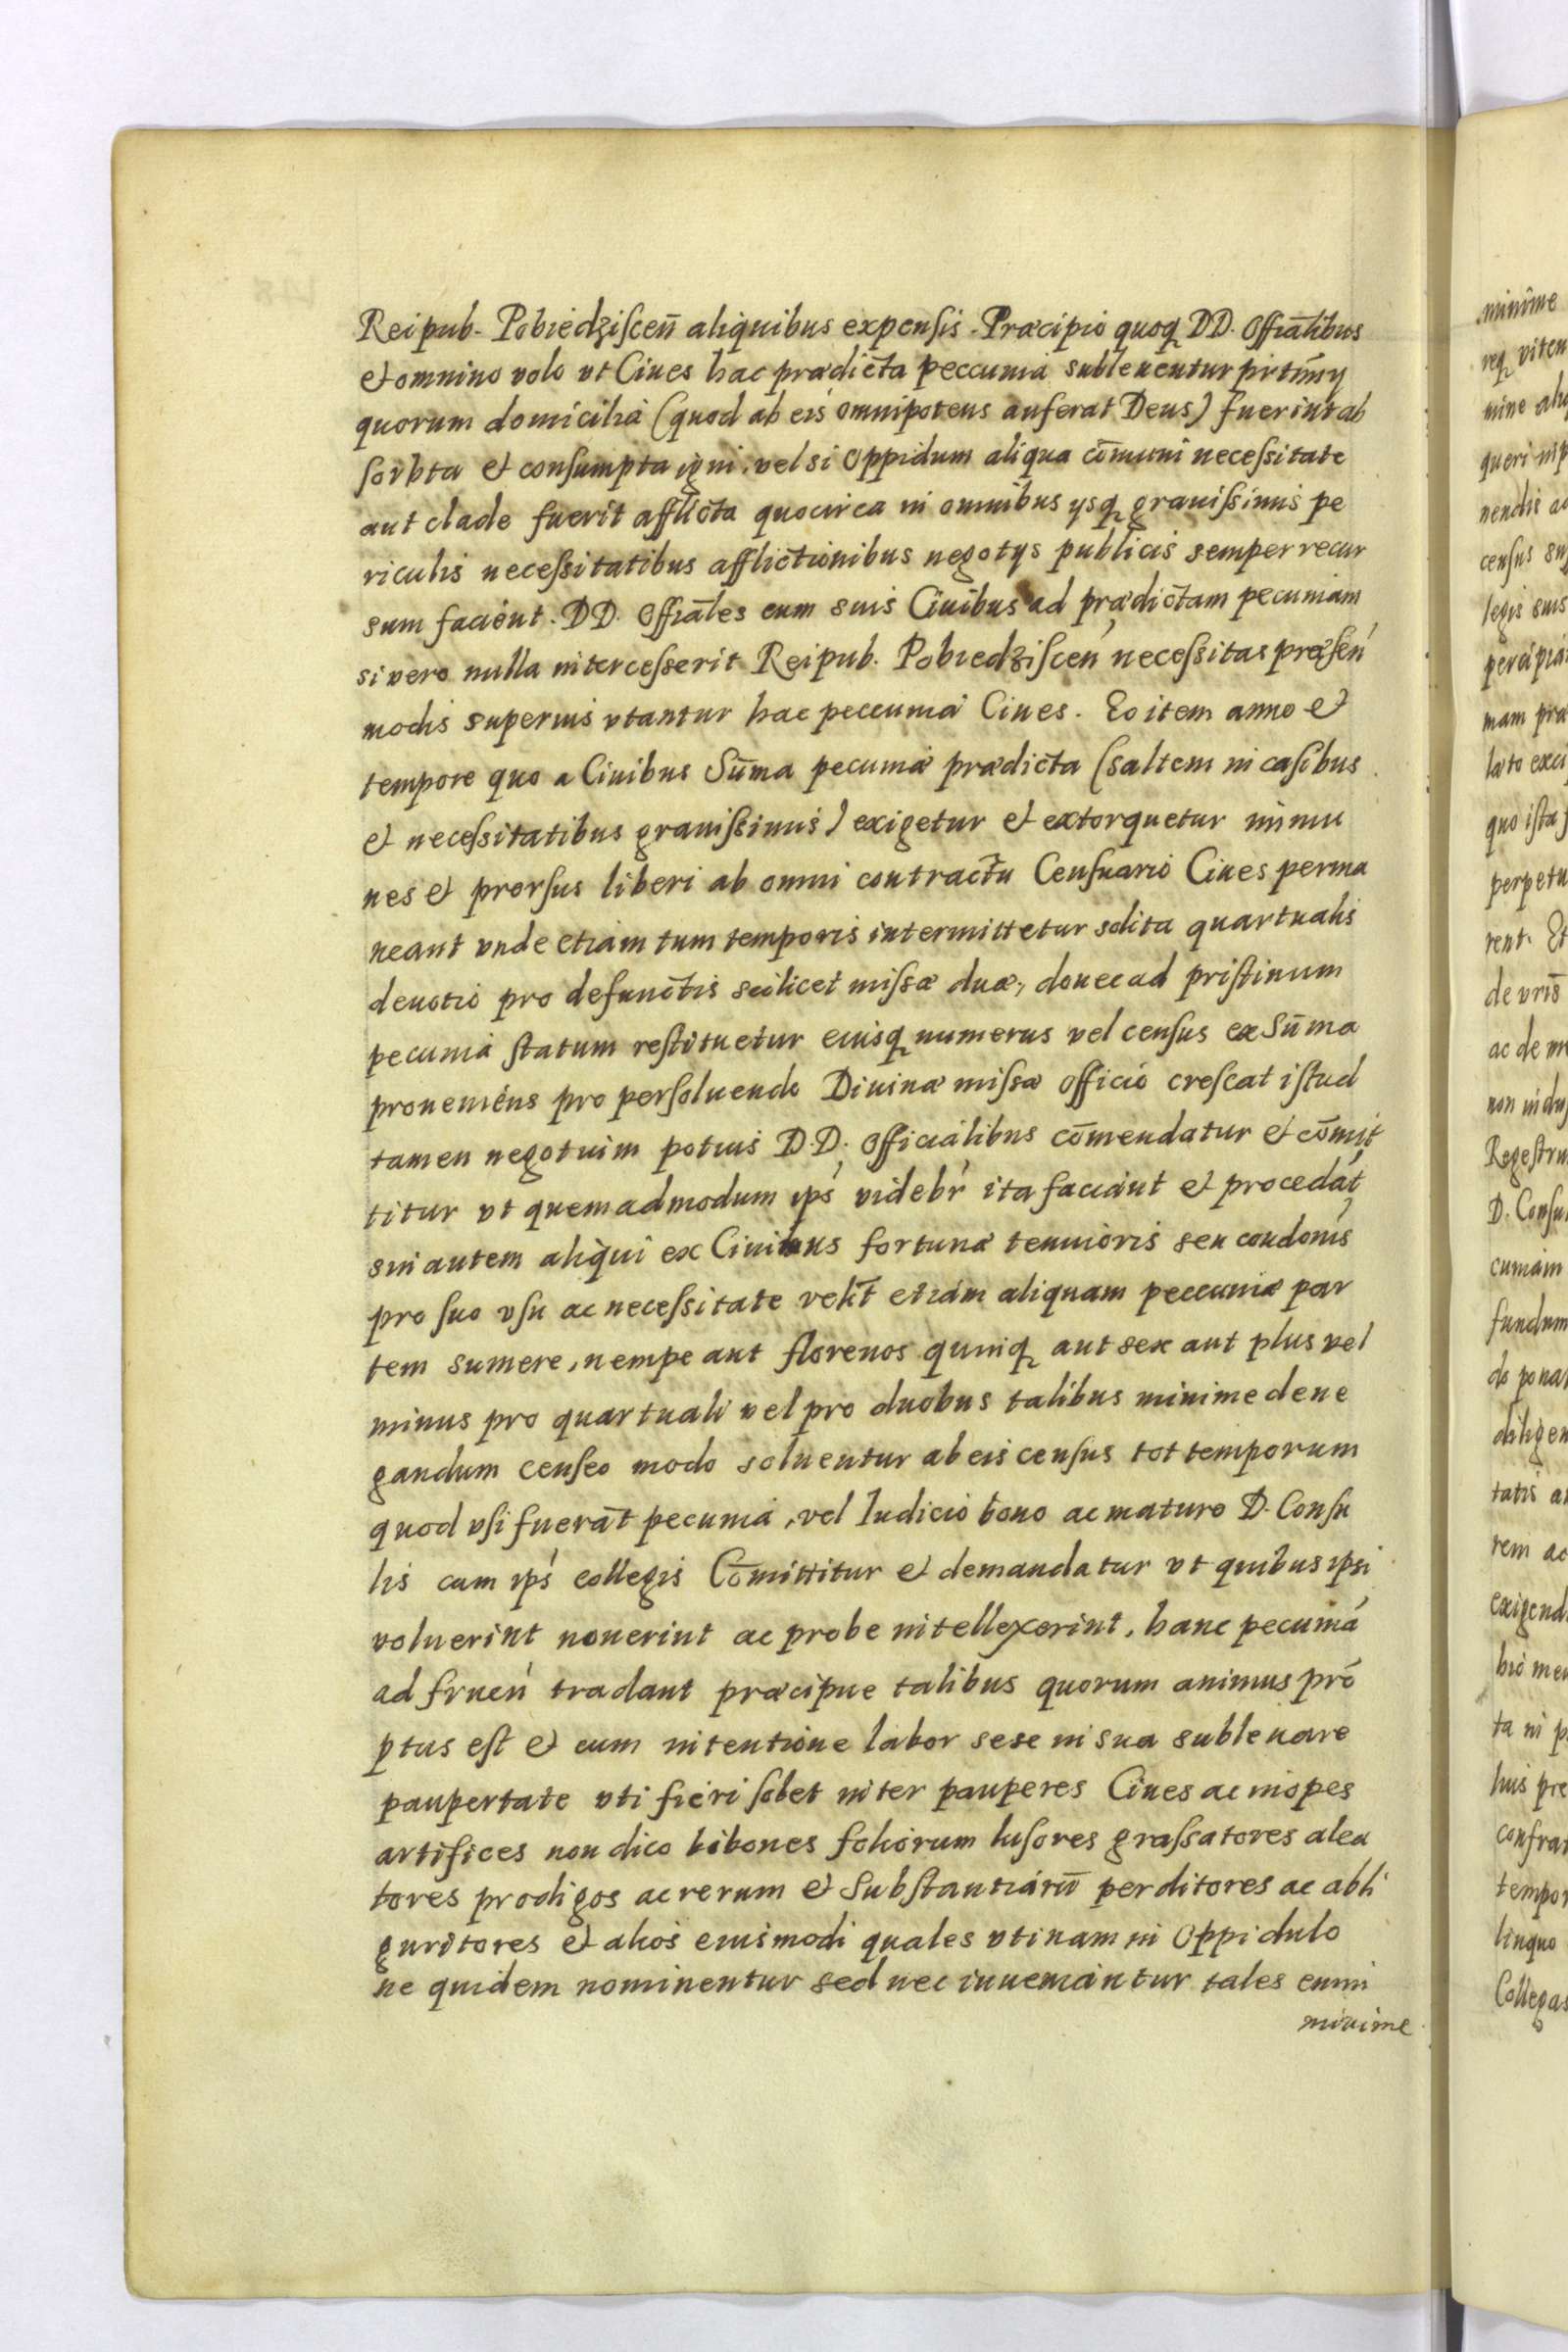 Reipub. Pobiedziscen̄ aliquibus expensis. Præcipio quoq DD. Offiālibus
et omnino volo vt Ciues hac prædicta peccunia subleuentur
quorum domicilia (quod ab eis omnipotens auferat Deus) fuerint ab
sorbta et consumpta igni, vel si Oppidum aliqua cōmuni necessitate
aut clade fuerit afflicta quocirca in omnibus ysq grauissimis pe
riculis necessitatibus afflictionibus negotys publicis semper recur
sum facient. DD. Offiāles cum suis Ciuibus ad prædictam pecuniam
si vero nulla intercesserit Reipub. Pobiedziscen necessitas præsen
modis superius vtantur hac peccunia Ciues. Eo item anno et
tempore quo a Ciuibus Sūma pecuniæ prædicta (saltem in casibus
et necessitatibus grauissimis) exigetur et extorquetur immu
nes et prorsus liberi ab omni contractu Censuario Ciues perma
neant vnde etiam tum temporis intermittetur solita quartualis
deuotio pro defunctis scilicet missæ duæ, donec ad pristinum
pecunia statum restituetur eiusq numerus vel census ex Sūma
proueniens pro persoluendo Diuinæ missæ officio crescat istud
tamen negotium potius D.D. Officialibus cōmendatur et cōmit
titur vt quemadmodum ips videbr ita faciant et procedāt
sin autem aliqui ex Ciuibus fortunæ tenuioris seu condonis
pro suo vsu ac necessitate velīt etiam aliquam peccuniæ par
tem sumere, nempe aut florenos quinq aut sex aut plus vel
minus pro quartuali vel pro duobus talibus minime dene
gandum censeo modo soluentur ab eis census tot temporum
quod vsi fuerāt pecunia, vel Iudicio bono ac maturo D. Consu
lis cum ips collegis Cōmittitur et demandatur vt quibus ipsi
voluerint nouerint ac probe intellexerint, hanc pecuniā
ad fruen tradant præcipue talibus quorum animus prō
ptus est et cum intentione labor sese in sua subleuare
paupertate vti fieri solet inter pauperes Ciues ac inopes
artifices non dico bibones foliorum lusores grassatores alea
tores prodigos ac rerum et Substantiarū perditores ac abli
guritores et alios eiusmodi quales vtinam in Oppidulo
ne quidem nominentur sed nec inueniantur tales enim
minime
minime
req viten
nendis
legis suis
mam præ
læto
quo ista
perpetu
rent. Et
de vris
ac de
Regestru
D. Consu
cumam
fundum
do
diligen
tatis
rem ac
exigend
ta in p
confra
tempor
linquo
Collegas